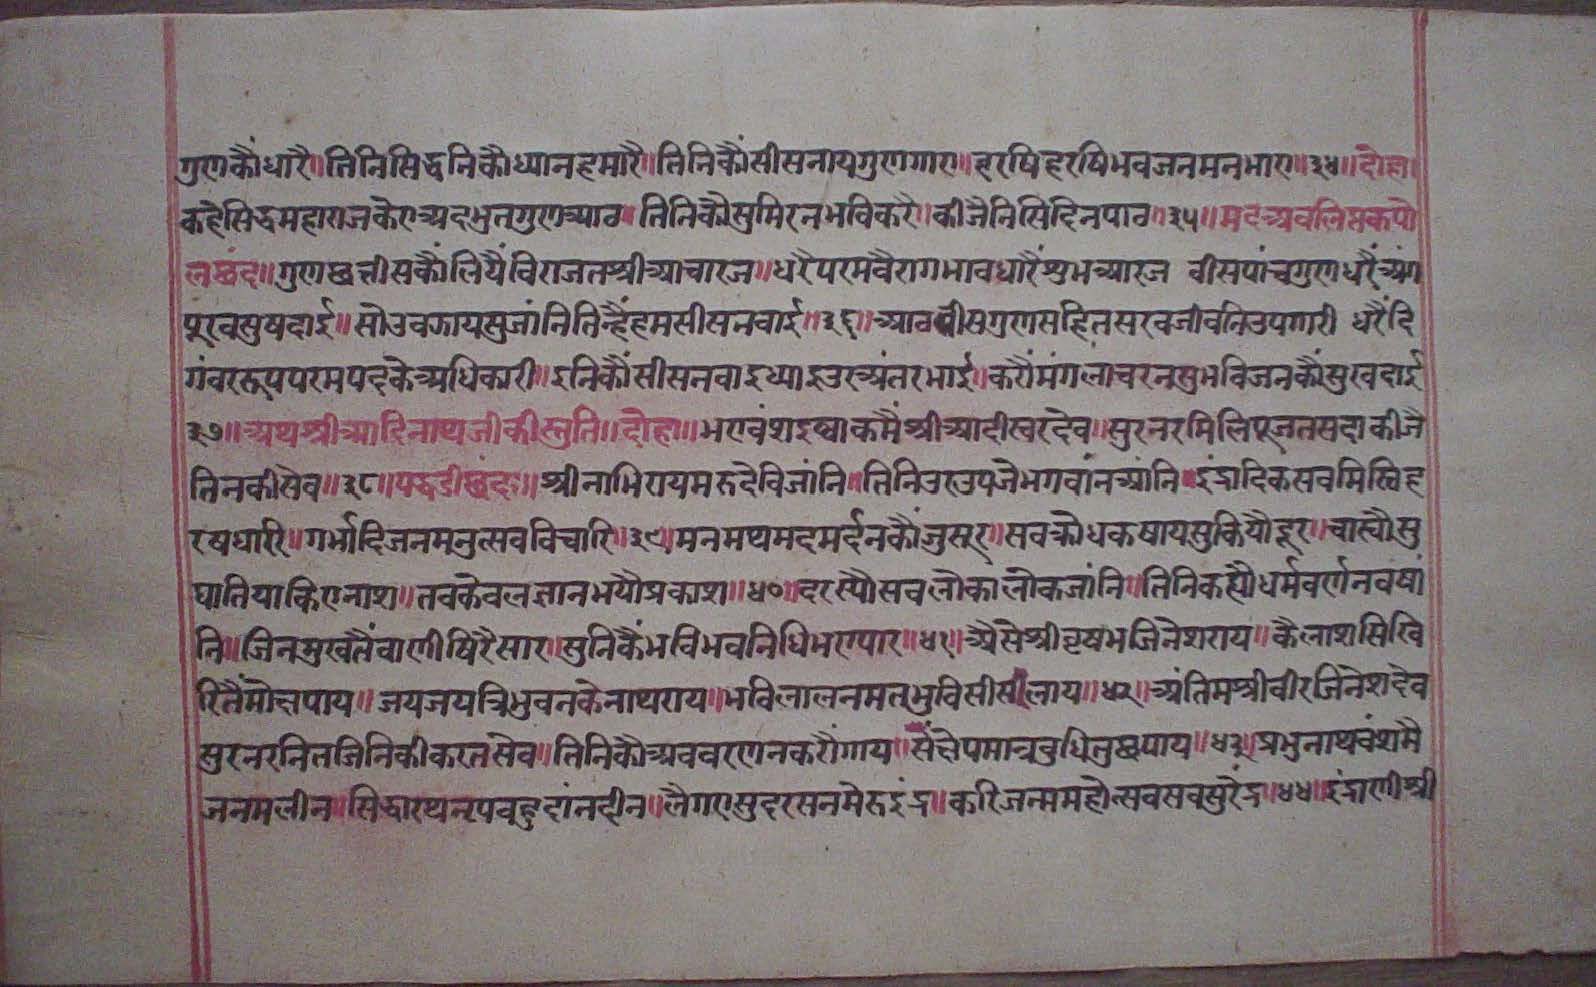 गुणकौंधारै॥तिनिसिद्धनिकौध्यानहमारै॥तिनिकौंसीसनायगुणगाए॥हरषिहरषिभवजनमनभाए॥३४॥दोहा।
कहेसिद्धमहाराजकेएअदभुतगुणआठ॥तिनिकौसुमिरनभविकरै॥कीजैनिसिदिनपाठ॥३५॥मदअवलिप्तकपो
लछंद॥गुणछत्तीसकौंलियैंविराजतश्रीआचारज॥धरैपरमवैरागभावधारैंशुभआरज वीसपांचगुणधरैंअंग
पूरवसुषदाई॥सोउवझायसुजांनितिन्हैंहमसीसनवाई॥३६॥आठवीसगुणसहितसरवजीवनिउपगारी धरैंदि
गंवररूपपरमपदकेअधिकारी॥इनिकौंसीसनवाइध्याइउरअंतरभाई॥करौंमंगलाचरनसुभविजनकौंसुखदाई
३७॥अथश्रीआदिनाथजीकीस्तुति॥दोहा॥भएवंशइष्वाकमैंश्रीआदीस्वरदेव॥सुरनरमिलिपूजतसदाकीजै
तिनकीसेव॥३८॥पद्धडीछंद॥श्रीनाभिरायमरुदेविजांनि॥तिनिउरउपजेभगवांनआंनि॥इंद्रादिकसवमिल्विह
रषधारि॥गर्भादिजनमनुत्सवविचारि॥३९॥मनमथमदमर्दनकौंजुसूर॥सवक्रोधकषायसुकियौदूर॥चास्चौसु
घातियाकिएनाश॥तवकेवलज्ञानभयौप्रकाश॥४०॥दरस्यौसवलोकालोकजांनि॥तिनिकह्यौधर्मवर्णनवषां
नि॥जिनमुखतैंवाणीषिरैसार॥सुनिकैंभविभवनिधिभएपार॥४१॥अैसेश्रीवृषभजिनेशराय॥कैलाशसिखि
रितैंमोक्षपाय॥जयजयत्रिभुवनकेनाथराय॥भविलालनमतभुविसीसलाय॥४२॥अंतिमश्रीवीरजिनेशदेव
सुरनरनितजिनिकीकरतसेव॥तिनिकौअववरणनकरौंगाय॥संक्षेपमात्रवुधितुछपाय॥४३॥प्रभुनाथवंशमै
जनमलीन॥सिद्धारथनृपवहुदांनदीन॥लैगएसुदरसनमेरुइंद्र॥करिजन्ममहोत्सवसवसुरेंद्र॥४४॥इंद्राणीश्री